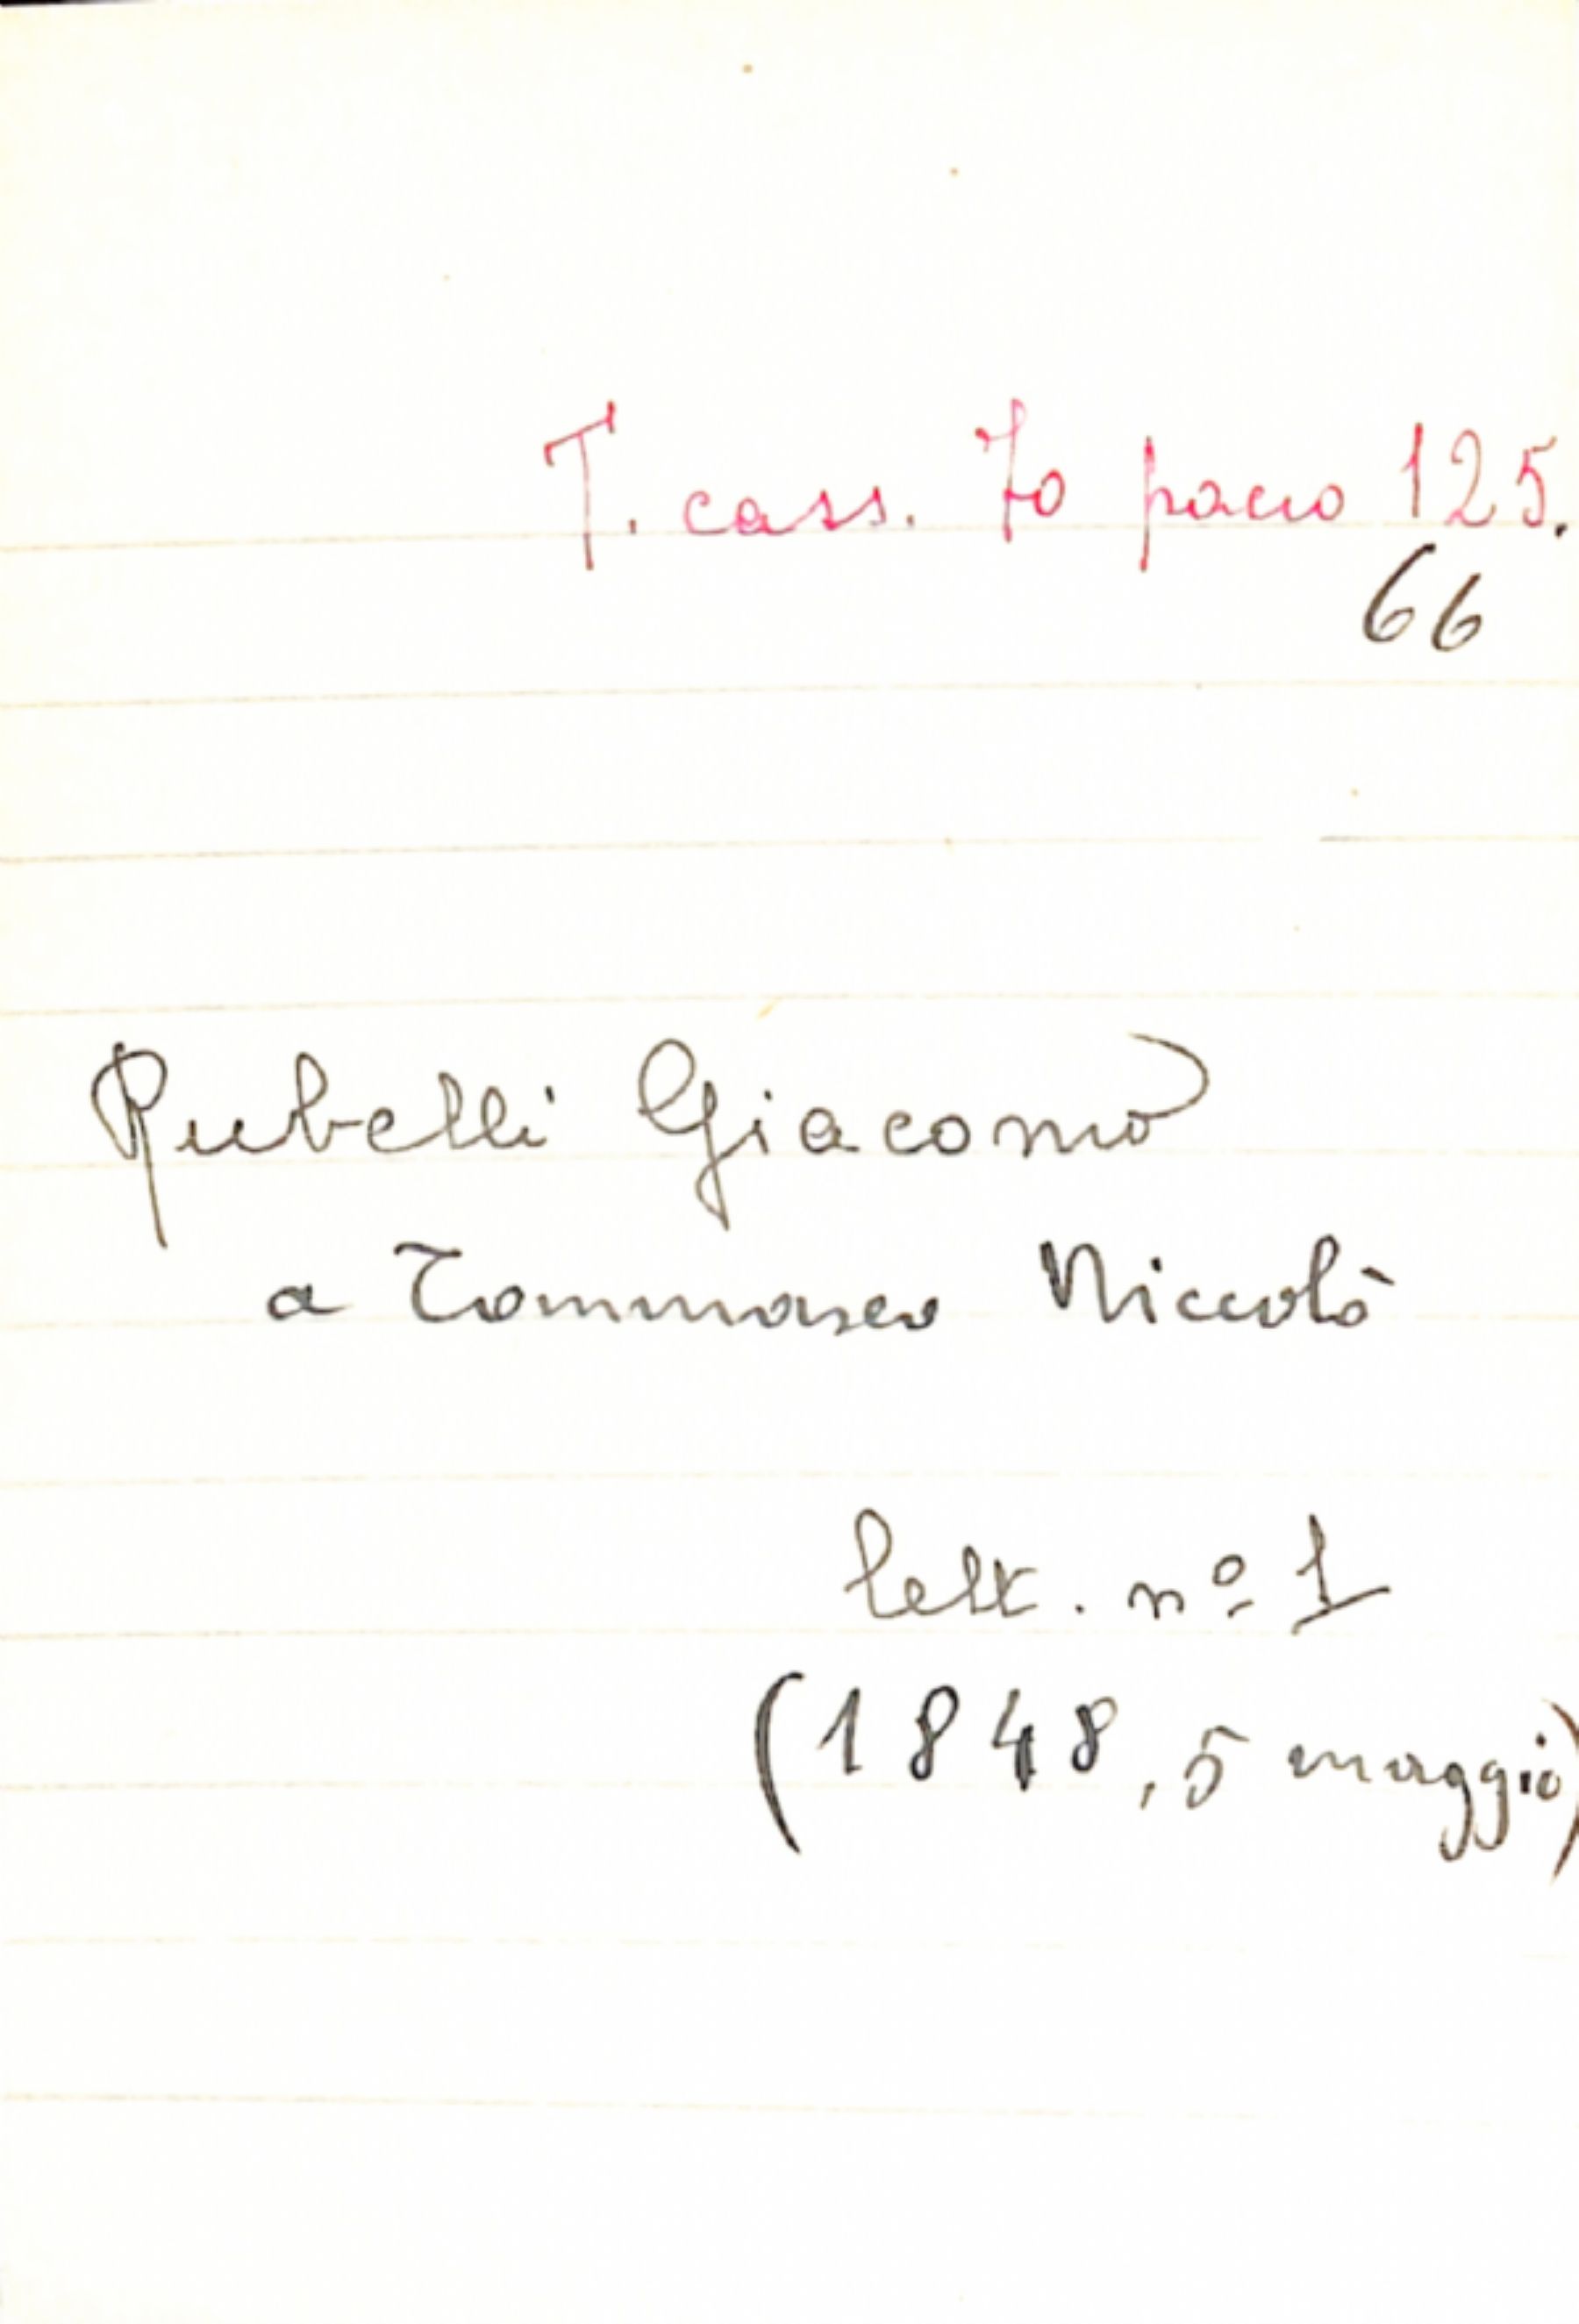 T. cass. 70 pacco 125.
66
Rubelli Giacomo
a Tommaseo Niccolò
lett. nº 1
(1848, 5 maggio)